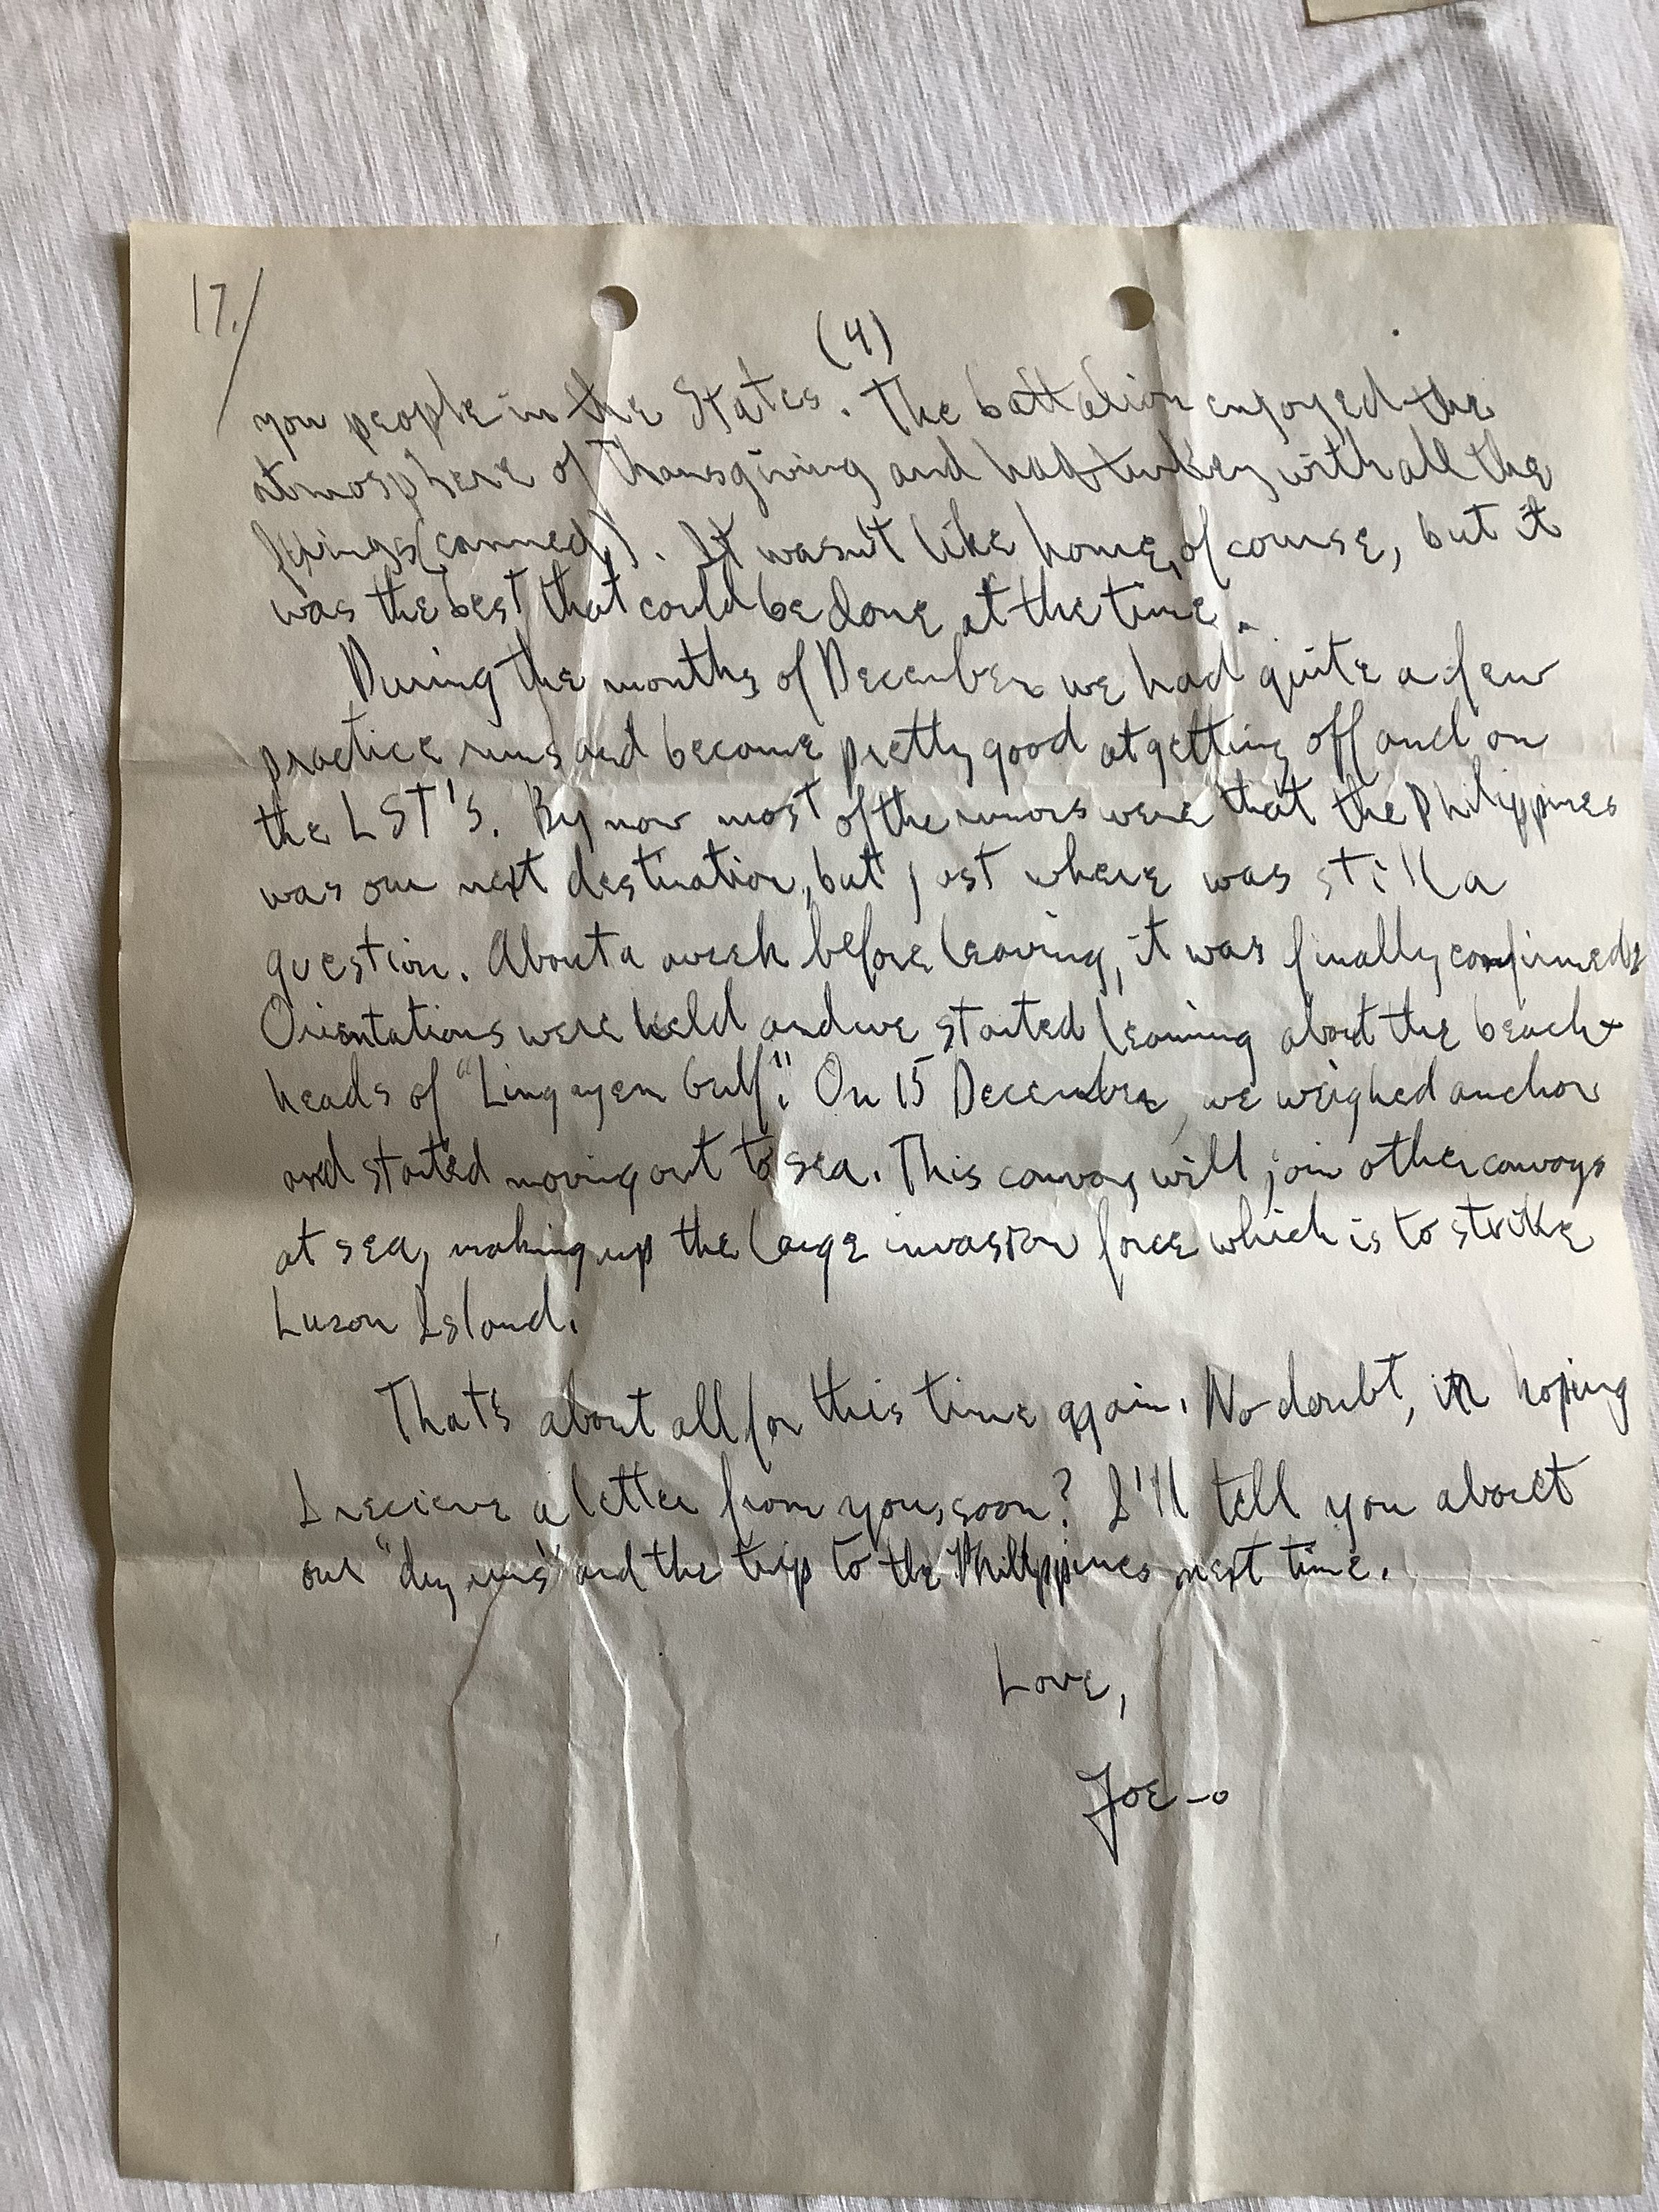 17./
(4)
you people in the States. The battalion enjoyed the
atmosphere of Thansgiving and had turkey with all the
fixings (canned). It wasn't like home, of course, but it
was the best that could be done at the time.
During the months of December we had quite a few
practice runs and became pretty good at getting off and on
the LST's. By now most of the rumors were that the Philippines
was our next destination, but just where was still a
question. About a week before leaving, it was finally confirmed.
Orientations were held and we started learning about the beach-
heads of "Lingayen Gulf". On 15 December, we weighed anchor
and started moving out to sea. This convoy will join other convoys
at sea, making up the large invasion force which is to strike
Luzon Island.
That's about all for this time again. No doubt, hoping
I recieve a letter from you, soon? I'll tell you about
our "dry runs" and the trip to the Philippines next time.
Love,
Joe-o